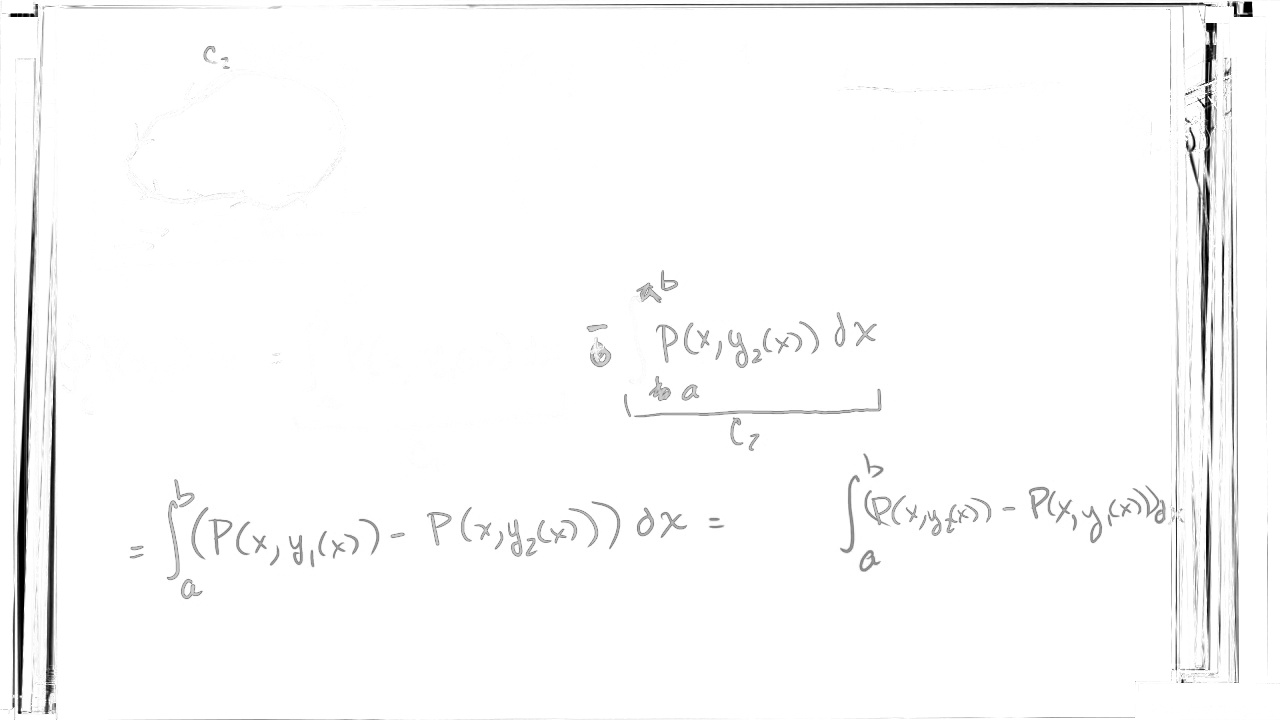 C₂
b
− P(x, y₂(x)) dx
a
C₂
= ∫ₐᵇ (P(x, y₁(x)) − P(x, y₂(x))) dx = ∫ₐᵇ (P(x, y₂(x)) − P(x, y₁(x))) d